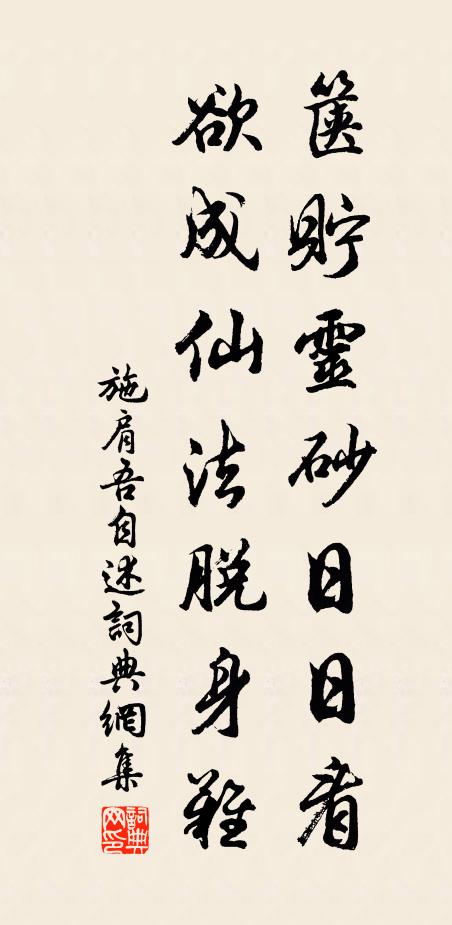 篋貯靈砂日日看
欲成仙法脫身難
施肩吾自述詞典網集
詞典網印